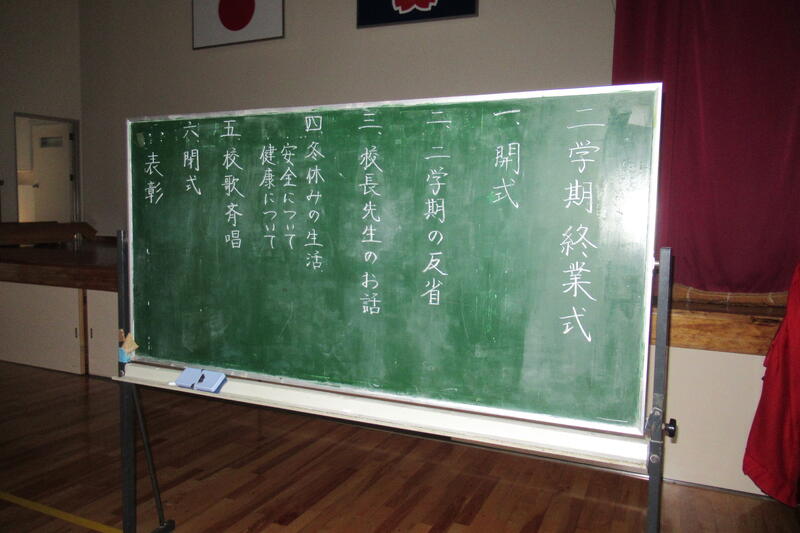 二学期終業式
一、開式
二、二学期の反省
三、校長先生のお話
四、冬休みの生活
安全について
健康について
五、校歌斉唱
六、閉式
・表彰